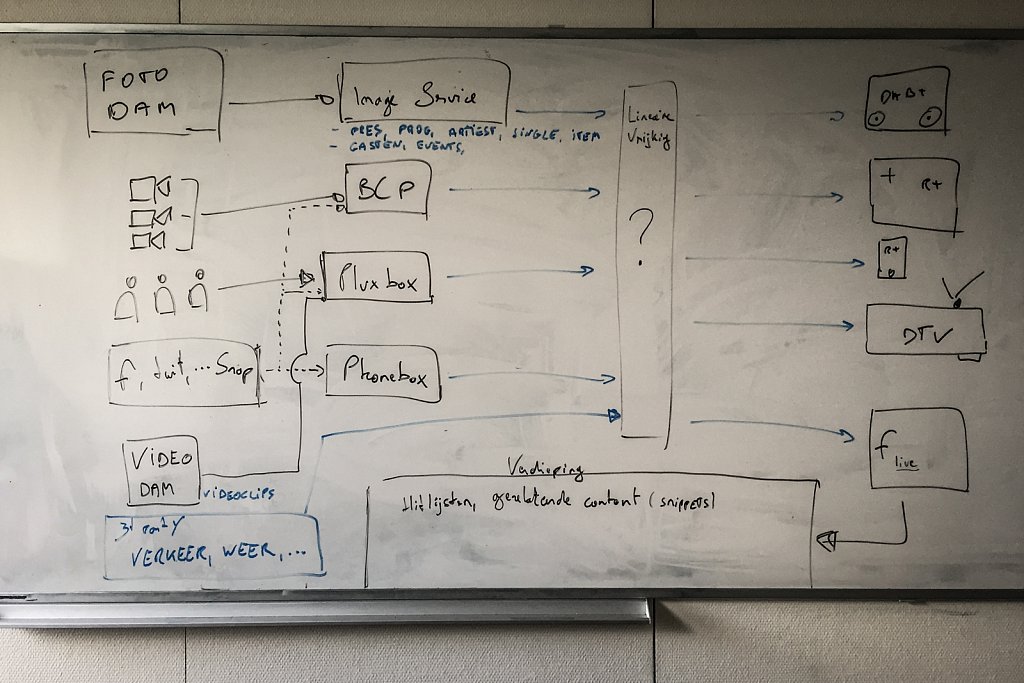 FOTO
DAM
Image Service
- PRES, PROG, ARTIEST, SINGLE, ITEM
- GASTEN, EVENTS,
Lineaire
?
DAB+
BCP
+ R+
Pluxbox
R+
f, twit, ... Snap
Phonebox
DTV
VIDEO
DAM
VIDEOCLIPS
f live
3d party
VERKEER, WEER, ...
Verdieping
Hitlijsten, gerelateerde content (SNIPPETS)